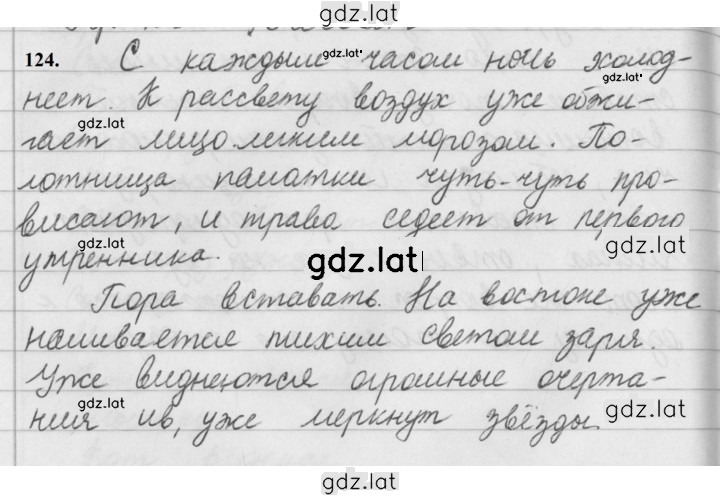 gdz.lat
124. С каждым gdz.lat часом ночь холод-
gdz.lat
неет. К рассвету воздух уже обжи-
gdz.lat
гает лицо легким морозом. По-
лотнища палатки чуть-чуть про-
висают, и трава седеет от первого
gdz.lat
утренника.
gdz.lat
Пора вставать. На востоке уже
наливается тихим светом заря.
Уже виднеются огромные очерта-
gdz.lat
gdz.lat
ния ив, уже меркнут звёзды.
gdz.lat